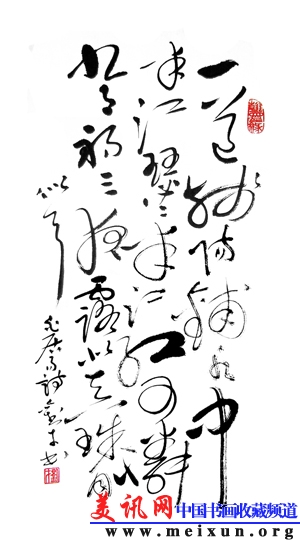 一道殘陽鋪水中
半江瑟瑟半江紅可憐
九月初三夜露似真珠月
似弓
白居易詩
美讯网 中国书画收藏频道
www.meixun.com